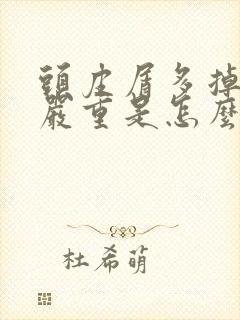 頭皮屑多掉
嚴重是怎麼
杜希萌